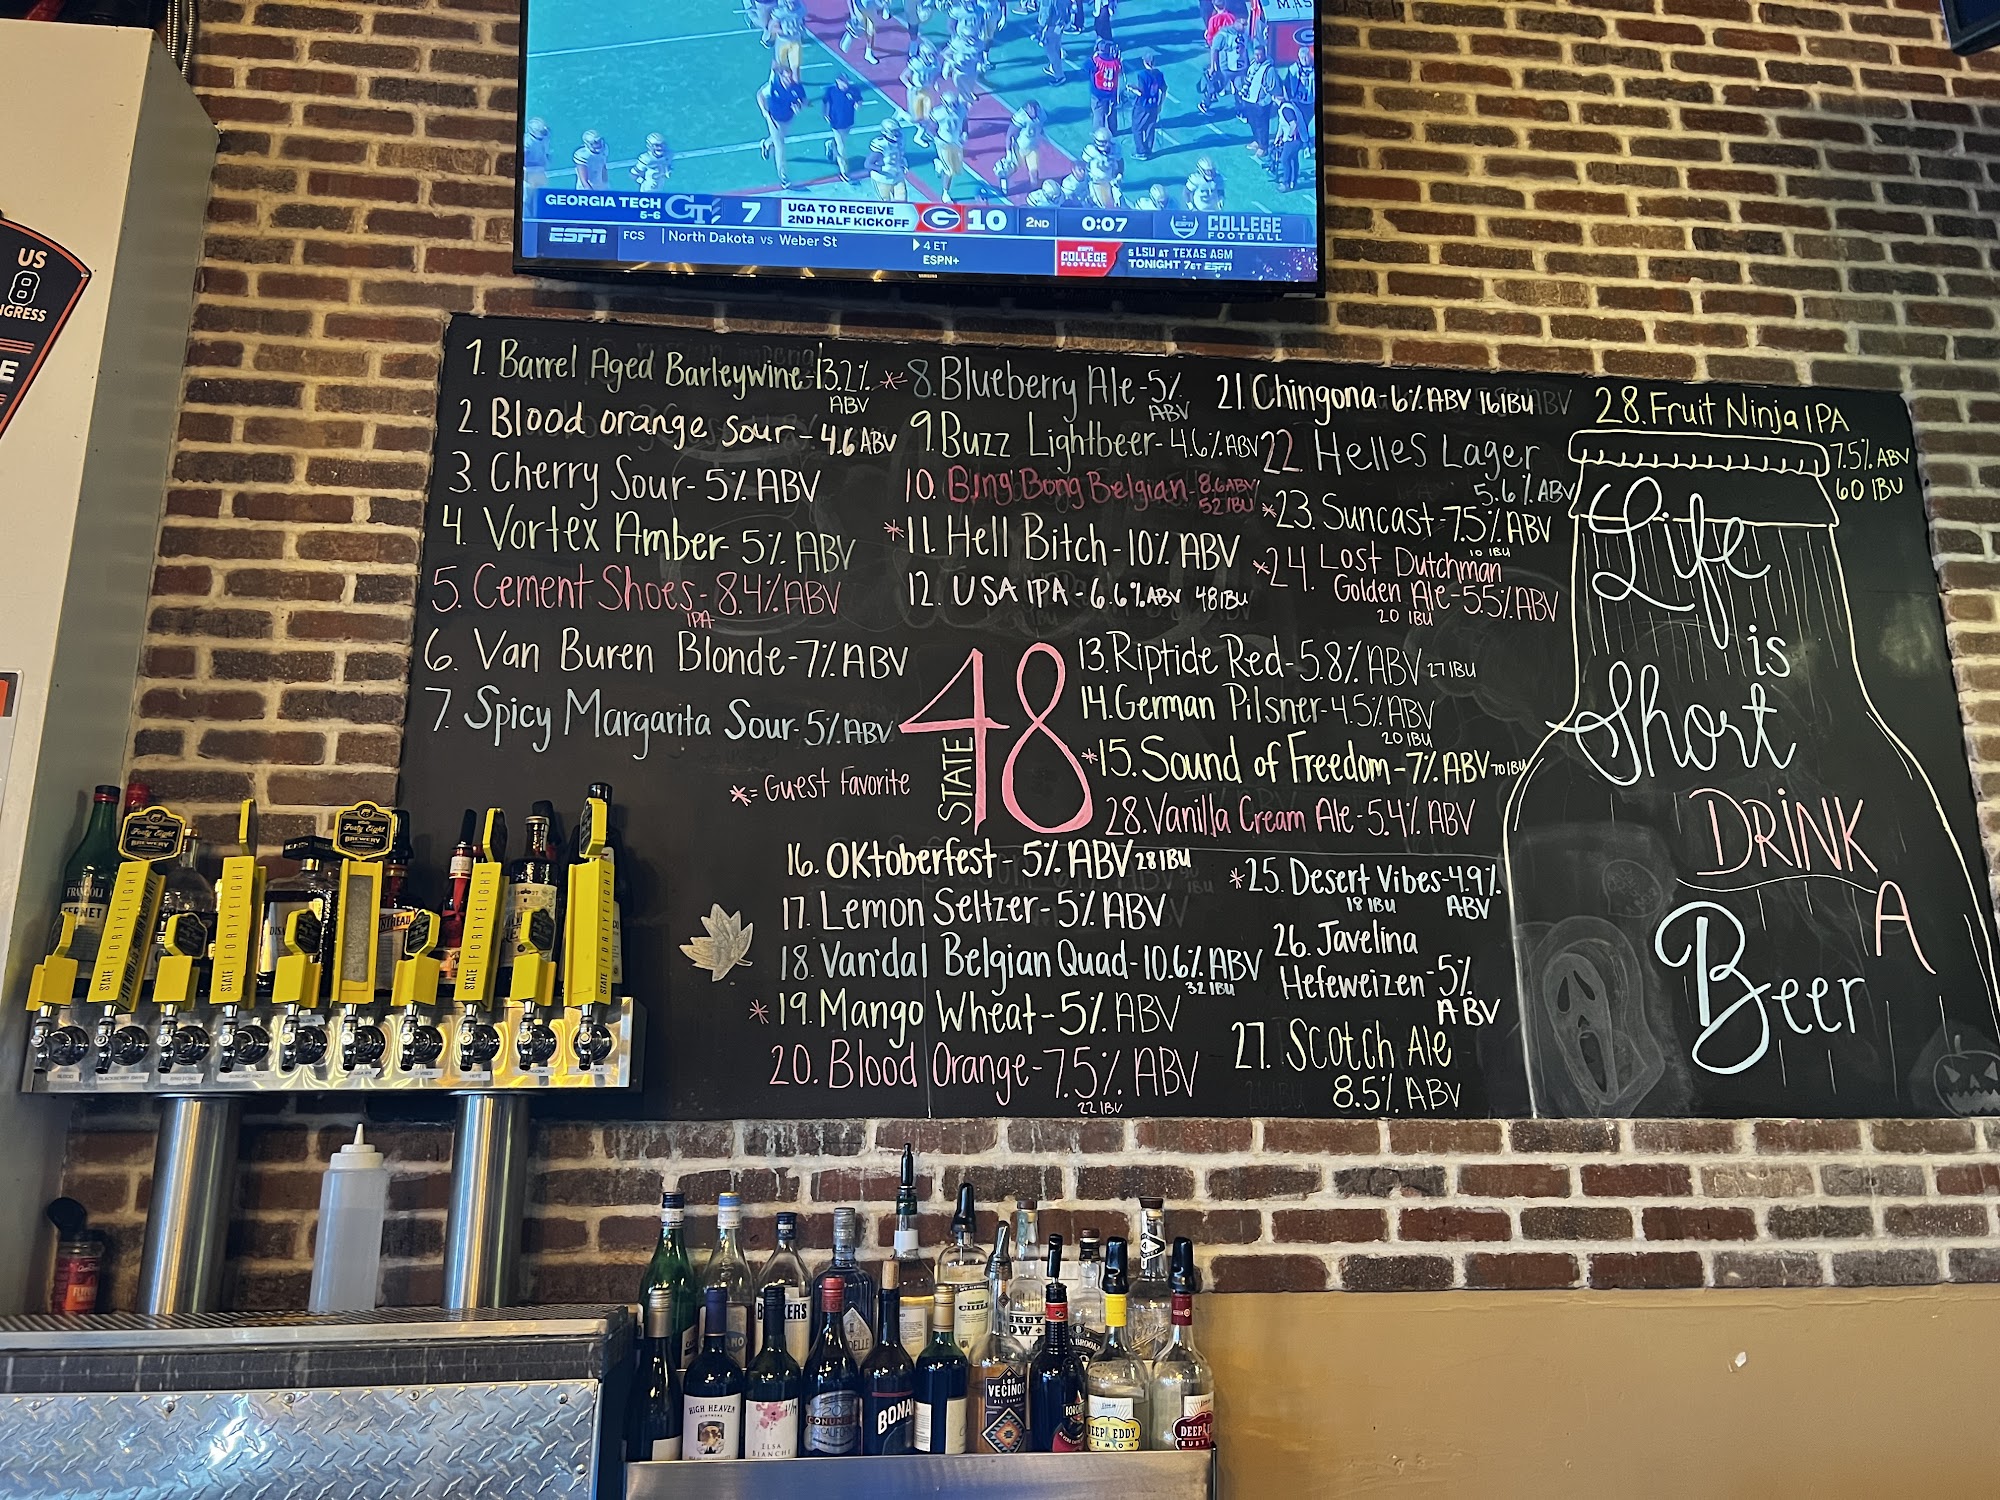 MAS
GEORGIA TECH
5-6
GT
7
UGA TO RECEIVE
2ND HALF KICKOFF
G
10
2ND
0:07
COLLEGE
FOOTBALL
ESPN
FCS
North Dakota vs Weber St
4 ET
ESPN+
ESPN
COLLEGE
FOOTBALL
5 LSU AT TEXAS A&M
TONIGHT 7ET ESPN
SAMSUNG
US
8
NGRESS
E
1. Barrel Aged Barleywine-13.2%
ABV
2. Blood orange Sour - 4.6 ABV
3. Cherry Sour- 5% ABV
4. Vortex Amber- 5% ABV
5. Cement Shoes- 8.4% ABV
IPA
6. Van Buren Blonde-7% ABV
7. Spicy Margarita Sour-5% ABV
*= Guest Favorite
STATE 48
* 8. Blueberry Ale-5%
ABV
9. Buzz Lightbeer-4.6% ABV
10. Bing Bong Belgian-8.6 ABV
52 IBU
*11. Hell Bitch-10% ABV
12. USA IPA-6.6% ABV 48 IBU
13. Riptide Red-5.8% ABV 27 IBU
14. German Pilsner-4.5% ABV
20 IBU
*15. Sound of Freedom-7% ABV 70 IBU
28. Vanilla Cream Ale-5.4% ABV
16. OKtoberfest- 5% ABV 28 IBU
17. Lemon Seltzer-5% ABV
18. Vandal Belgian Quad-10.6% ABV
32 IBU
*19. Mango Wheat-5% ABV
20. Blood Orange-7.5% ABV
22 IBU
21. Chingona-6% ABV 16 IBU
22. Helles Lager
5.6% ABV
*23. Suncast-7.5% ABV
10 IBU
*24. Lost Dutchman
Golden Ale-5.5% ABV
20 IBU
*25. Desert Vibes-4.9%
18 IBU ABV
26. Javelina
Hefeweizen-5%
ABV
27. Scotch Ale
8.5% ABV
28. Fruit Ninja IPA
7.5% ABV
60 IBU
Life
is
Short
DRiNK
A
Beer
Forty Eight
BREWERY
Forty Eight
BREWERY
STATE | FORTY EIGHT
STATE | FORTY EIGHT
STATE | FORTY EIGHT
STATE | FORTY EIGHT
FERNET
HIGH HEAVEN
ELSA
BIANCHI
CONUNDRUM
BONA
LOS
VECINOS
DEEP EDDY
LEMON
DEEP
RUBY